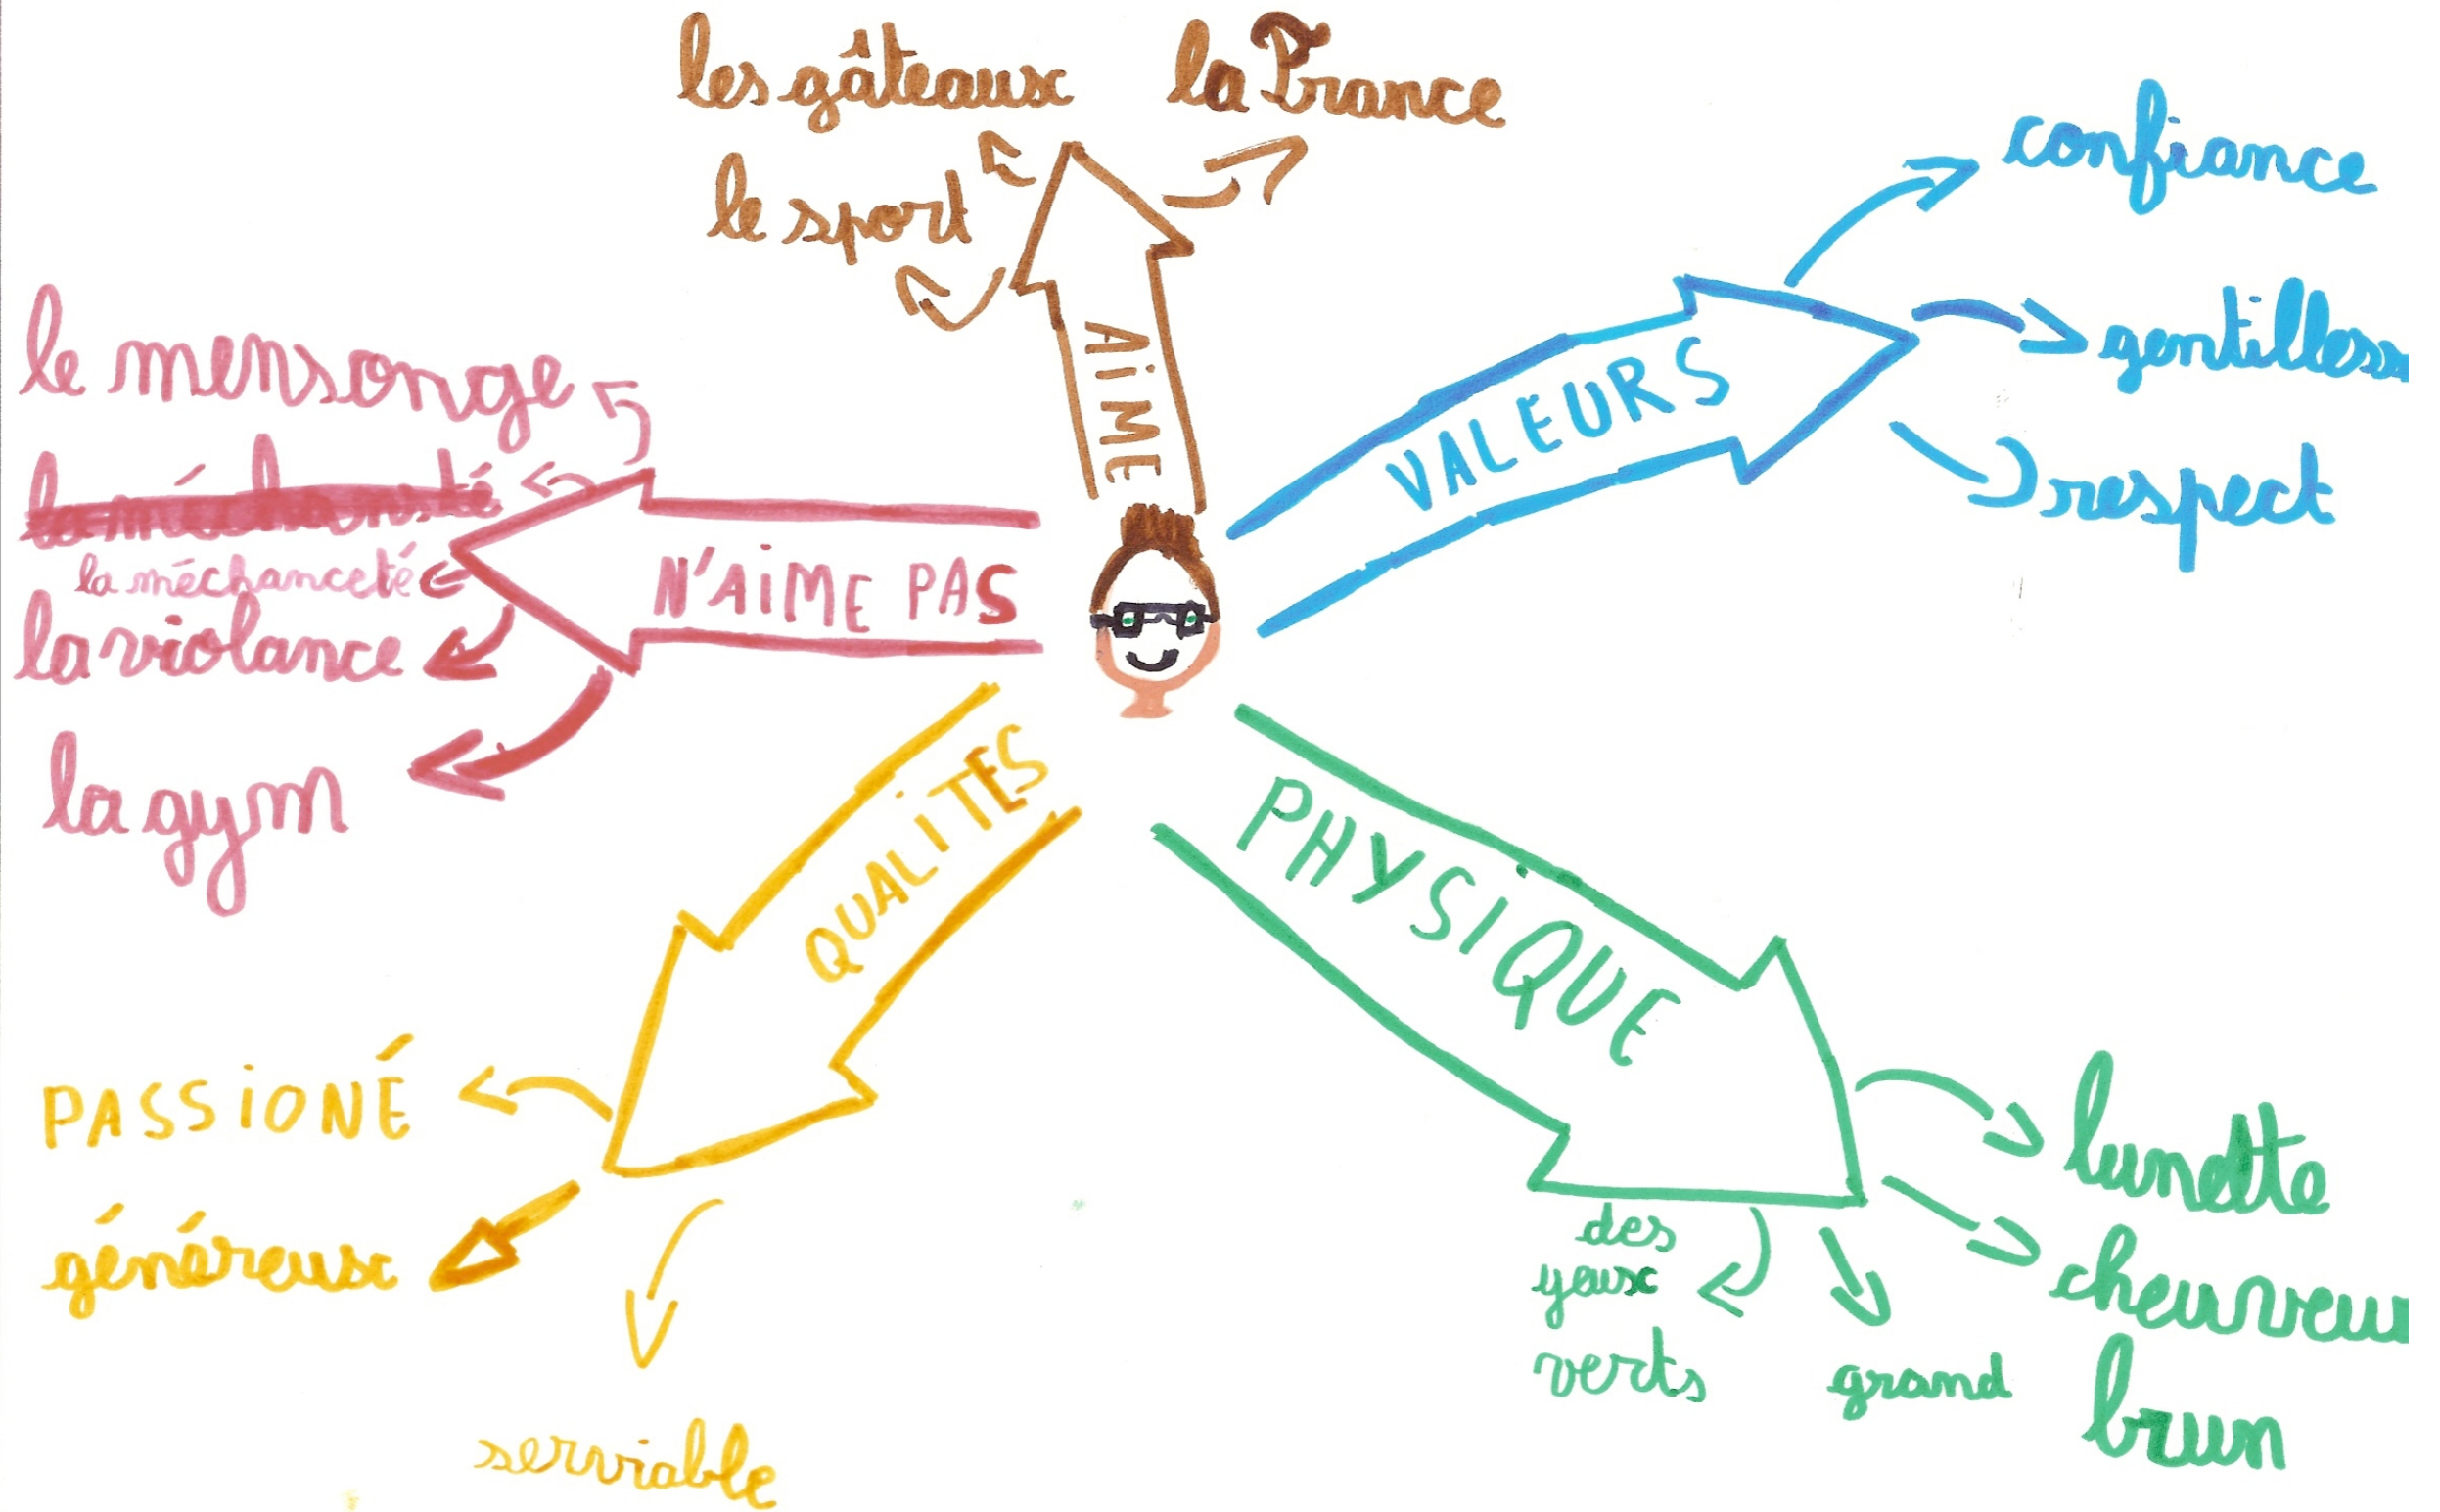 les gâteaux
la France
le sport
AiME
confiance
gentilless
respect
VALEURS
le mensonge
la méchanceté
la violance
la gym
N'AiME PAS
QUALiTES
PASSiONÉ
généreux
serviable
PHYSiQUE
lunette
cheuveu
brun
grand
des
yeux
verts